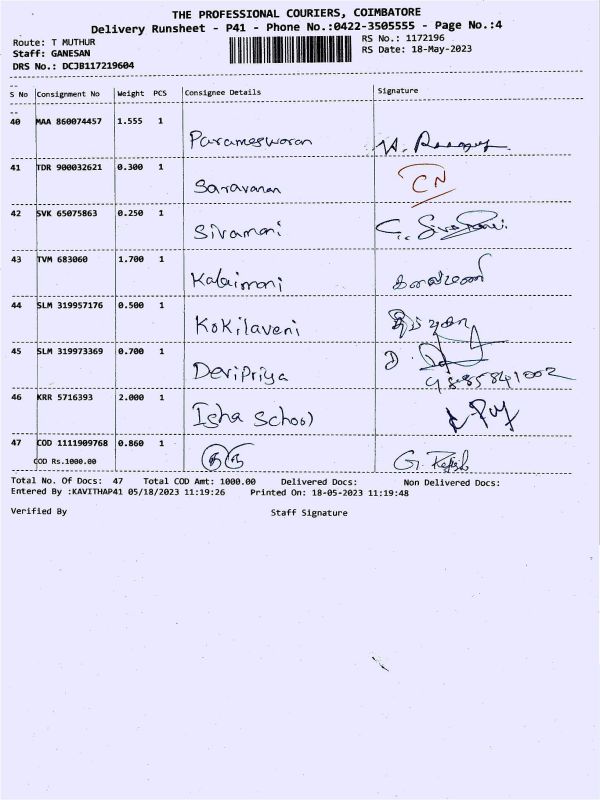 THE PROFESSIONAL COURIERS, COIMBATORE
Delivery Runsheet - P41 - Phone No.:0422-3505555 - Page No.:4
Route: T MUTHUR RS No.: 1172196
Staff: GANESAN RS Date: 18-May-2023
DRS No.: DCJB117219604
S No Consignment No Weight PCS Consignee Details Signature
40 MAA 860074457 1.555 1
Parameswaran
41 TDR 900032621 0.300 1
Saravanan CN
42 SVK 65075863 0.250 1
Sivamani
43 TVM 683060 1.700 1
Kalaimani கலைமணி
44 SLM 319957176 0.500 1
Kokilaveni
45 SLM 319973369 0.700 1
Devipriya D.
46 KRR 5716393 2.000 1
Isha School
47 COD 1111909768 0.860 1
COD Rs.1000.00
Total No. Of Docs: 47 Total COD Amt: 1000.00 Delivered Docs: Non Delivered Docs:
Entered By :KAVITHAP41 05/18/2023 11:19:26 Printed On: 18-05-2023 11:19:48
Verified By Staff Signature